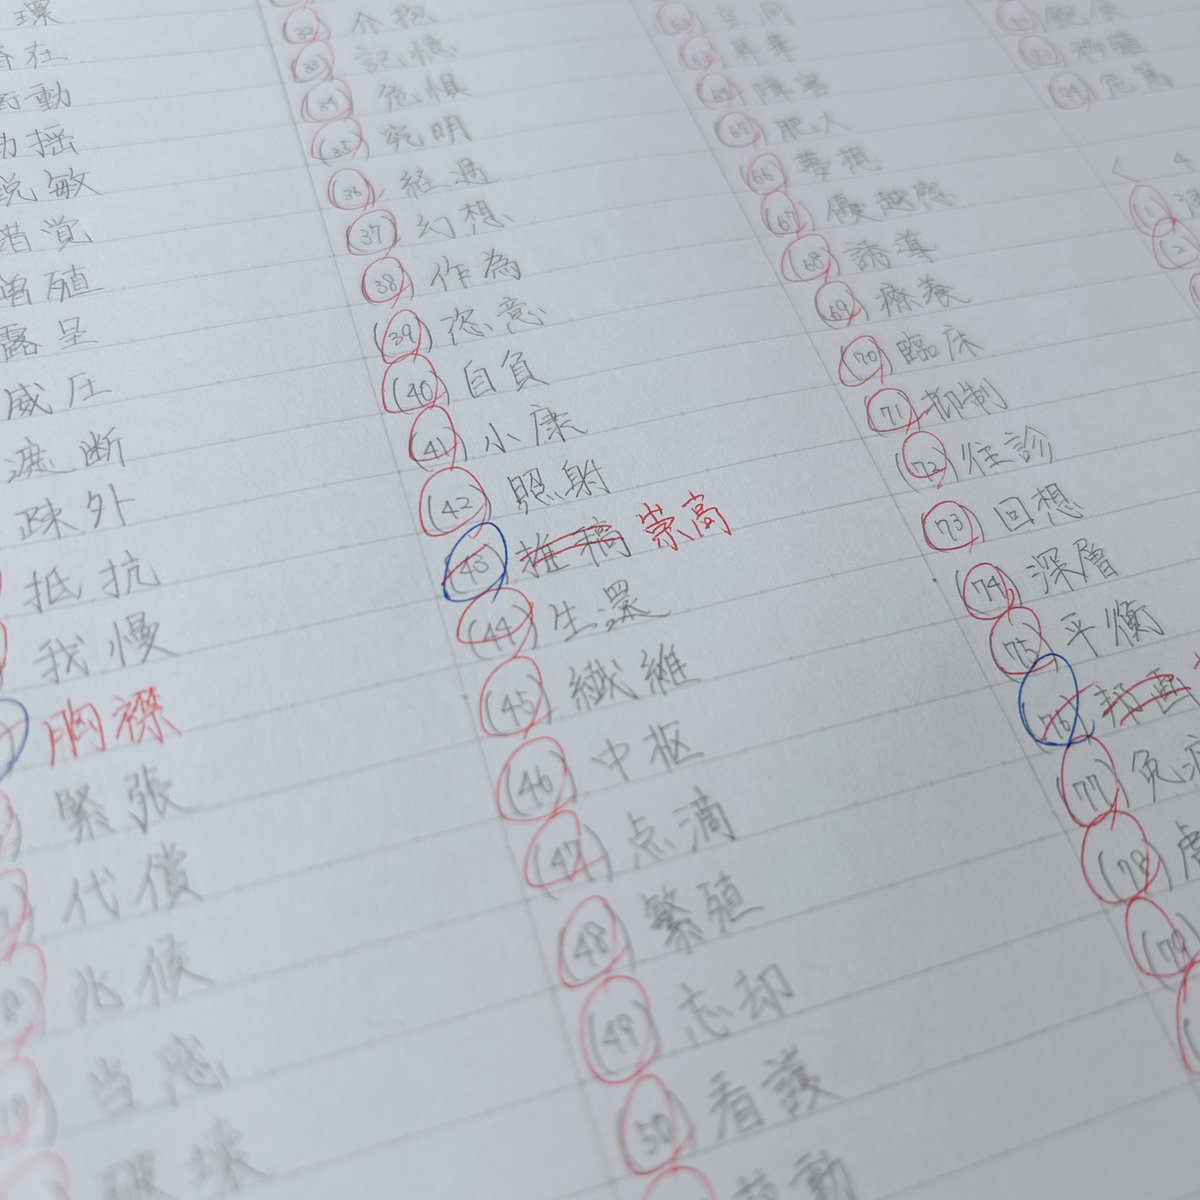 環
在
衝動
動揺
鋭敏
錯覚
増殖
露呈
威圧
遮断
疎外
抵抗
我慢
胸襟
緊張
代償
兆候
当惑
破壊
(32) 介抱
(33) 記憶
(34) 危惧
(35) 究明
(36) 経過
(37) 幻想
(38) 作為
(39) 恣意
(40) 自負
(41) 小康
(42) 照射
(43) 推稿 崇高
(44) 生還
(45) 繊維
(46) 中枢
(47) 点滴
(48) 繁殖
(49) 忘却
(50) 看護
動
空洞
昇華
(64) 障害
(65) 肥大
(66) 夢想
(67) 優越感
(68) 誘導
(69) 療養
(70) 臨床
(71) 抑制
(72) 往診
(73) 回想
(74) 深層
(75) 平衡
(76)
(77) 免疫
(78) 虐
(79)
危篤
く 4
(1)
(2)